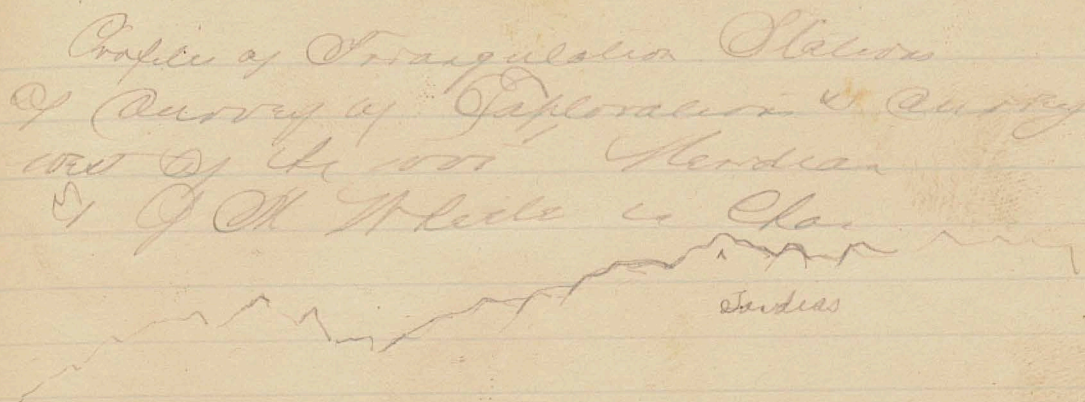 Profiles of Triangulation Stations
of Survey of Explorations & Survey
west of the 100, Meridian
By J M Wheeler in Chas